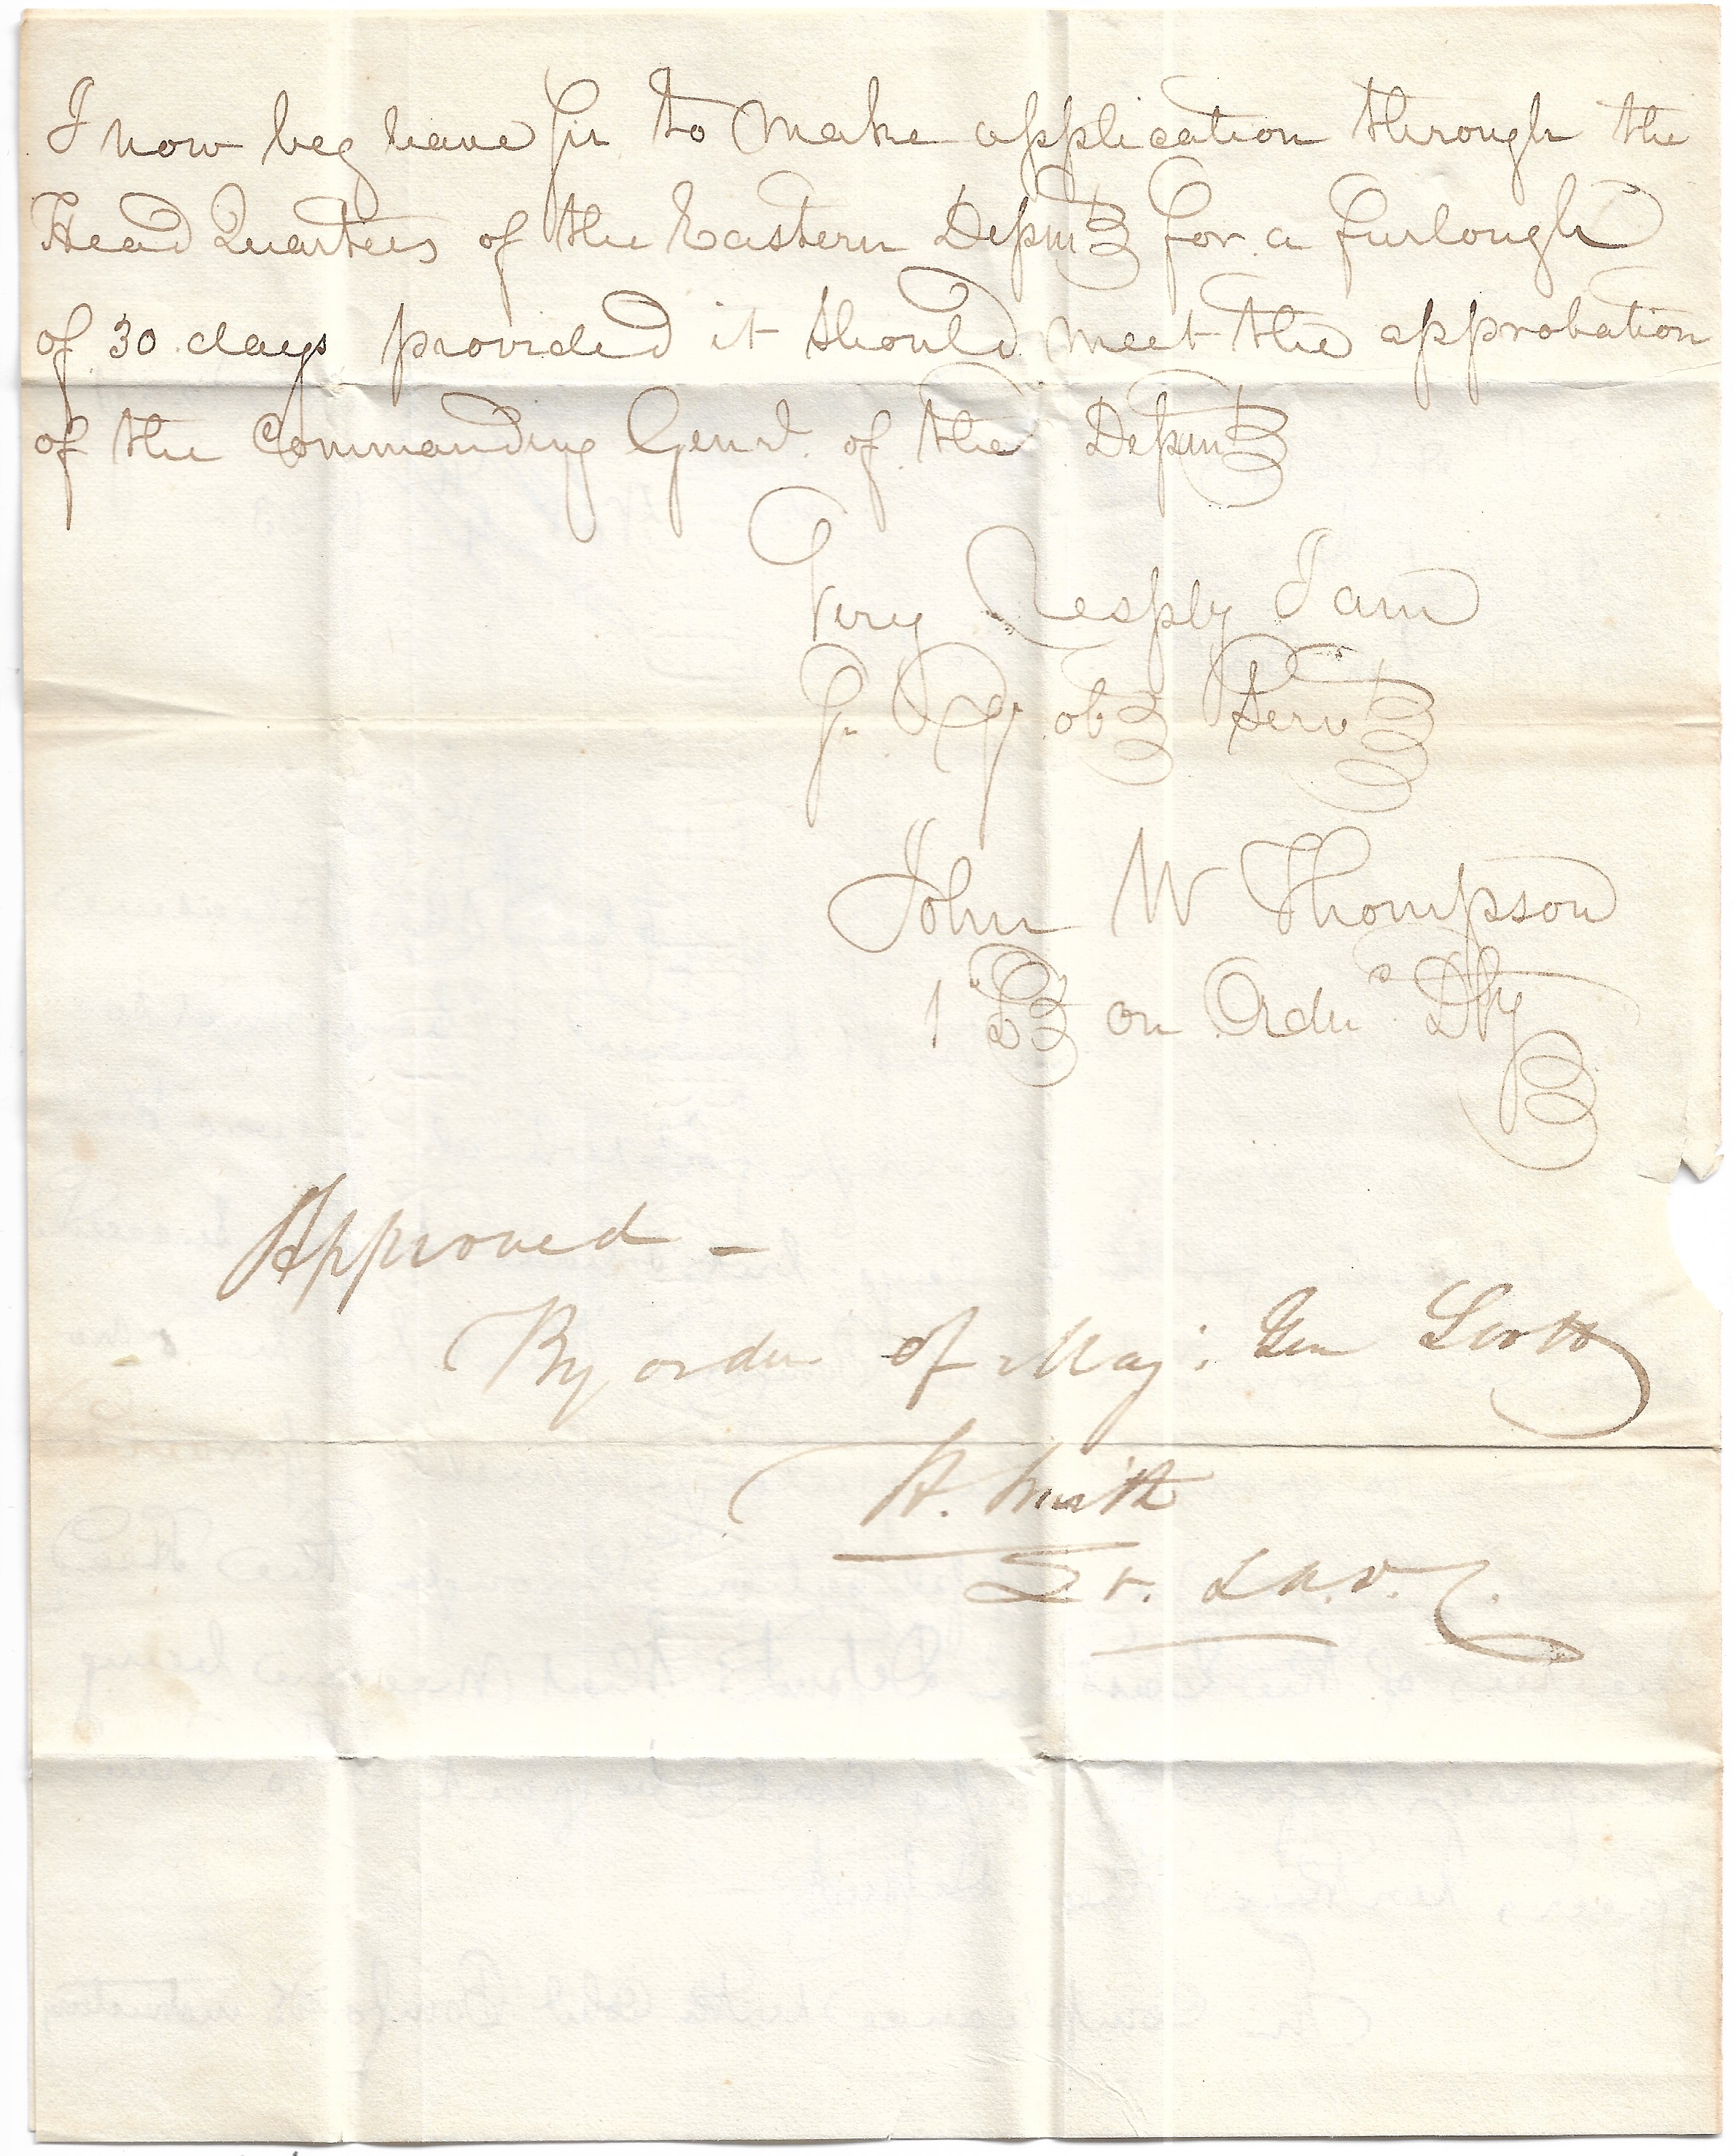 I now beg leave Sir to make application through the
Head Quarters of the Eastern Depmt for a furlough
of 30 days provided it should meet the approbation
of the Commanding Genrl. of the Depmt
Very Resply I am
Yr. obt Servt
John W Thompson
1" Lt on Ordn Dty
Approved -
By order of Maj: Gen Scott
H. Smith
Lt.